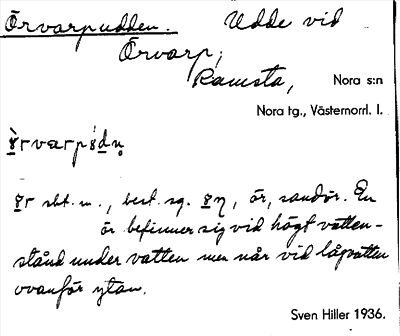 Örvarpudden. Udde vid
Örvarp,
Ramsta, Nora s:n
Nora tg., Västernorrl. l.
ör sbt. m., best. sg. öṇ, ör, sandör. En
ör befinner sig vid högt vatten-
stånd under vatten men når vid lågvatten
ovanför ytan.
Sven Hiller 1936.